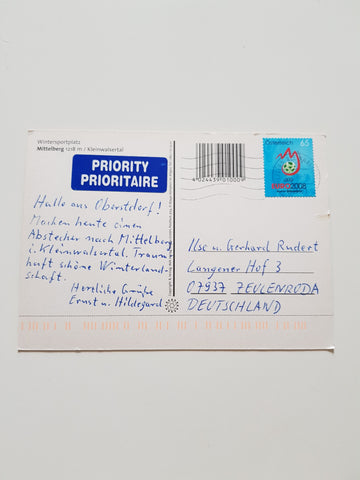 Wintersportplatz
Mittelberg 1218 m / Kleinwalsertal
PRIORITY
PRIORITAIRE
4024439010009
Österreich 65
2008
Hallo aus Oberstdorf!
Machen heute einen
Abstecher nach Mittelberg
i. Kleinwalsertal. Traum
haft schöne Winterland-
schaft.
Herzliche Grüße
Ernst u. Hildegard
Ilse u. Gerhard Rudert
Langener Hof 3
07937 ZEULENRODA
DEUTSCHLAND